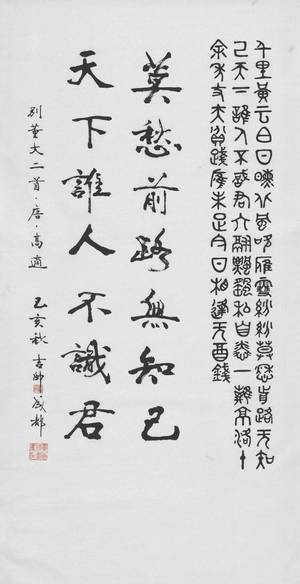 千里黃云白日曛北風吹雁雪紛紛莫愁前路无知
己天下誰人不識君六翮飄颻私自憐一離京洛十
余年丈夫貧賤應未足今日相逢无酒錢
莫愁前路無知己
天下誰人不識君
別董大二首·唐·高適
己亥秋 吉帥 成都